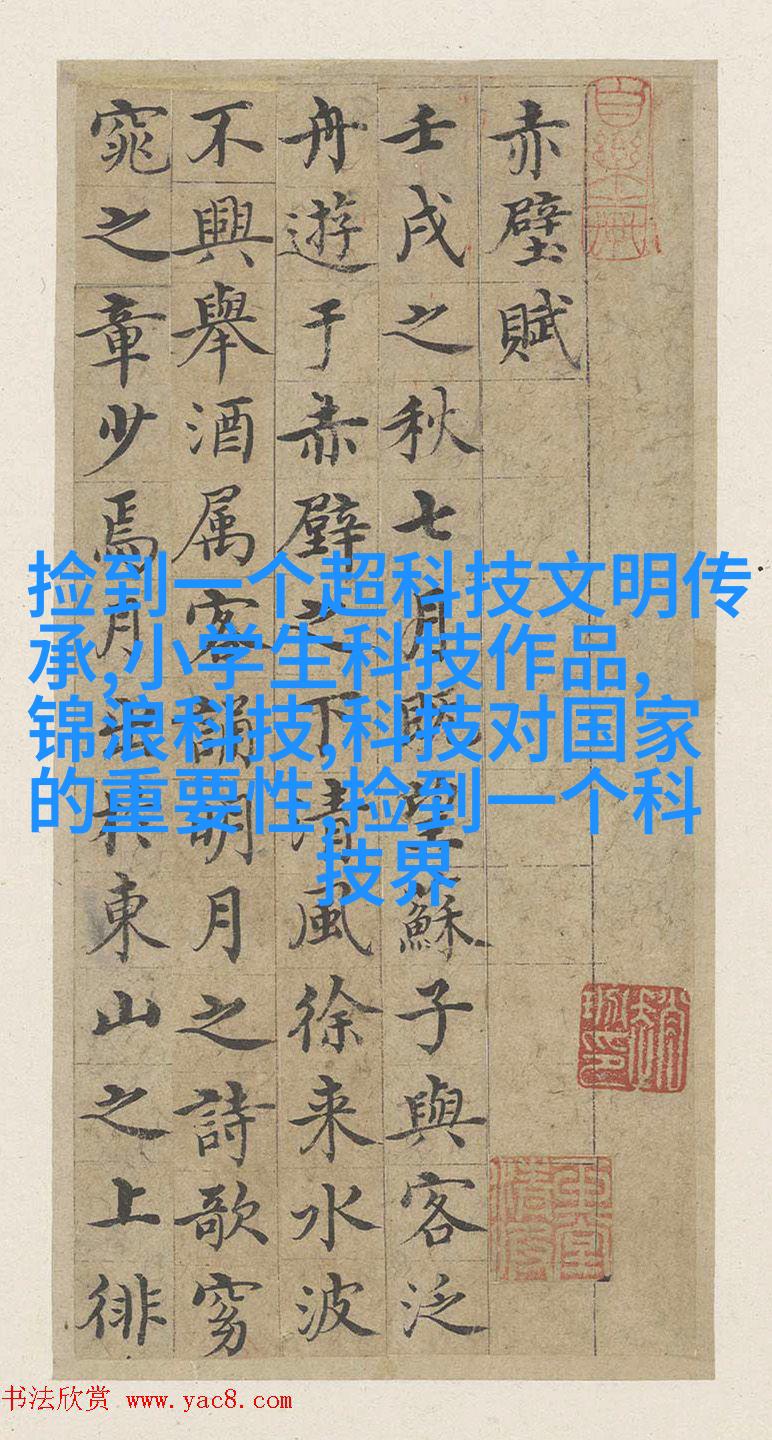 赤壁賦
壬戌之秋七月既望蘇子與客泛
舟遊于赤壁之下清風徐来水波
不興舉酒属客誦明月之詩歌窈
窕之章少焉月出於東山之上徘
捡到一个超科技文明传
承,小学生科技作品,
锦浪科技,科技对国家
的重要性,捡到一个科
技界
书法欣赏 www.yac8.com